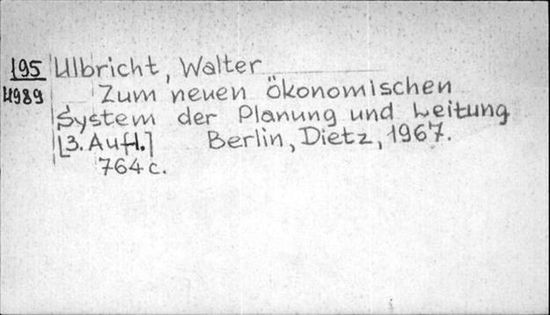 195 Ulbricht, Walter
4989 Zum neuen ökonomischen
System der Planung und Leitung
[3. Aufl.] Berlin, Dietz, 1967.
764 c.